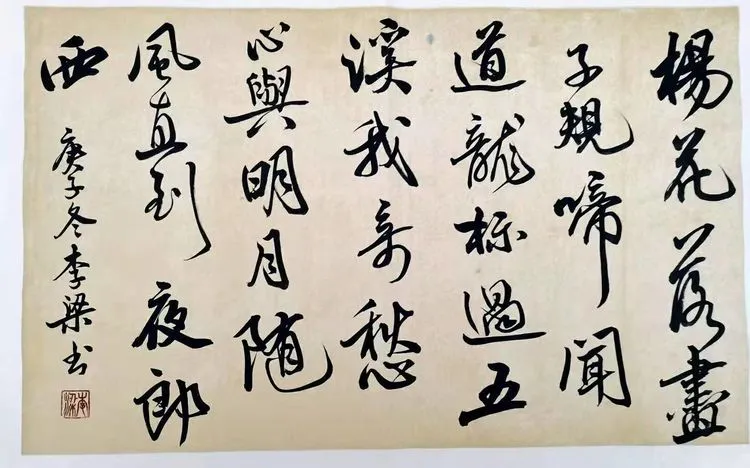 楊花落盡
子規啼聞
道龍标過五
溪我寄愁
心與明月随
風直到夜郎
西
庚子冬李梁书
李梁